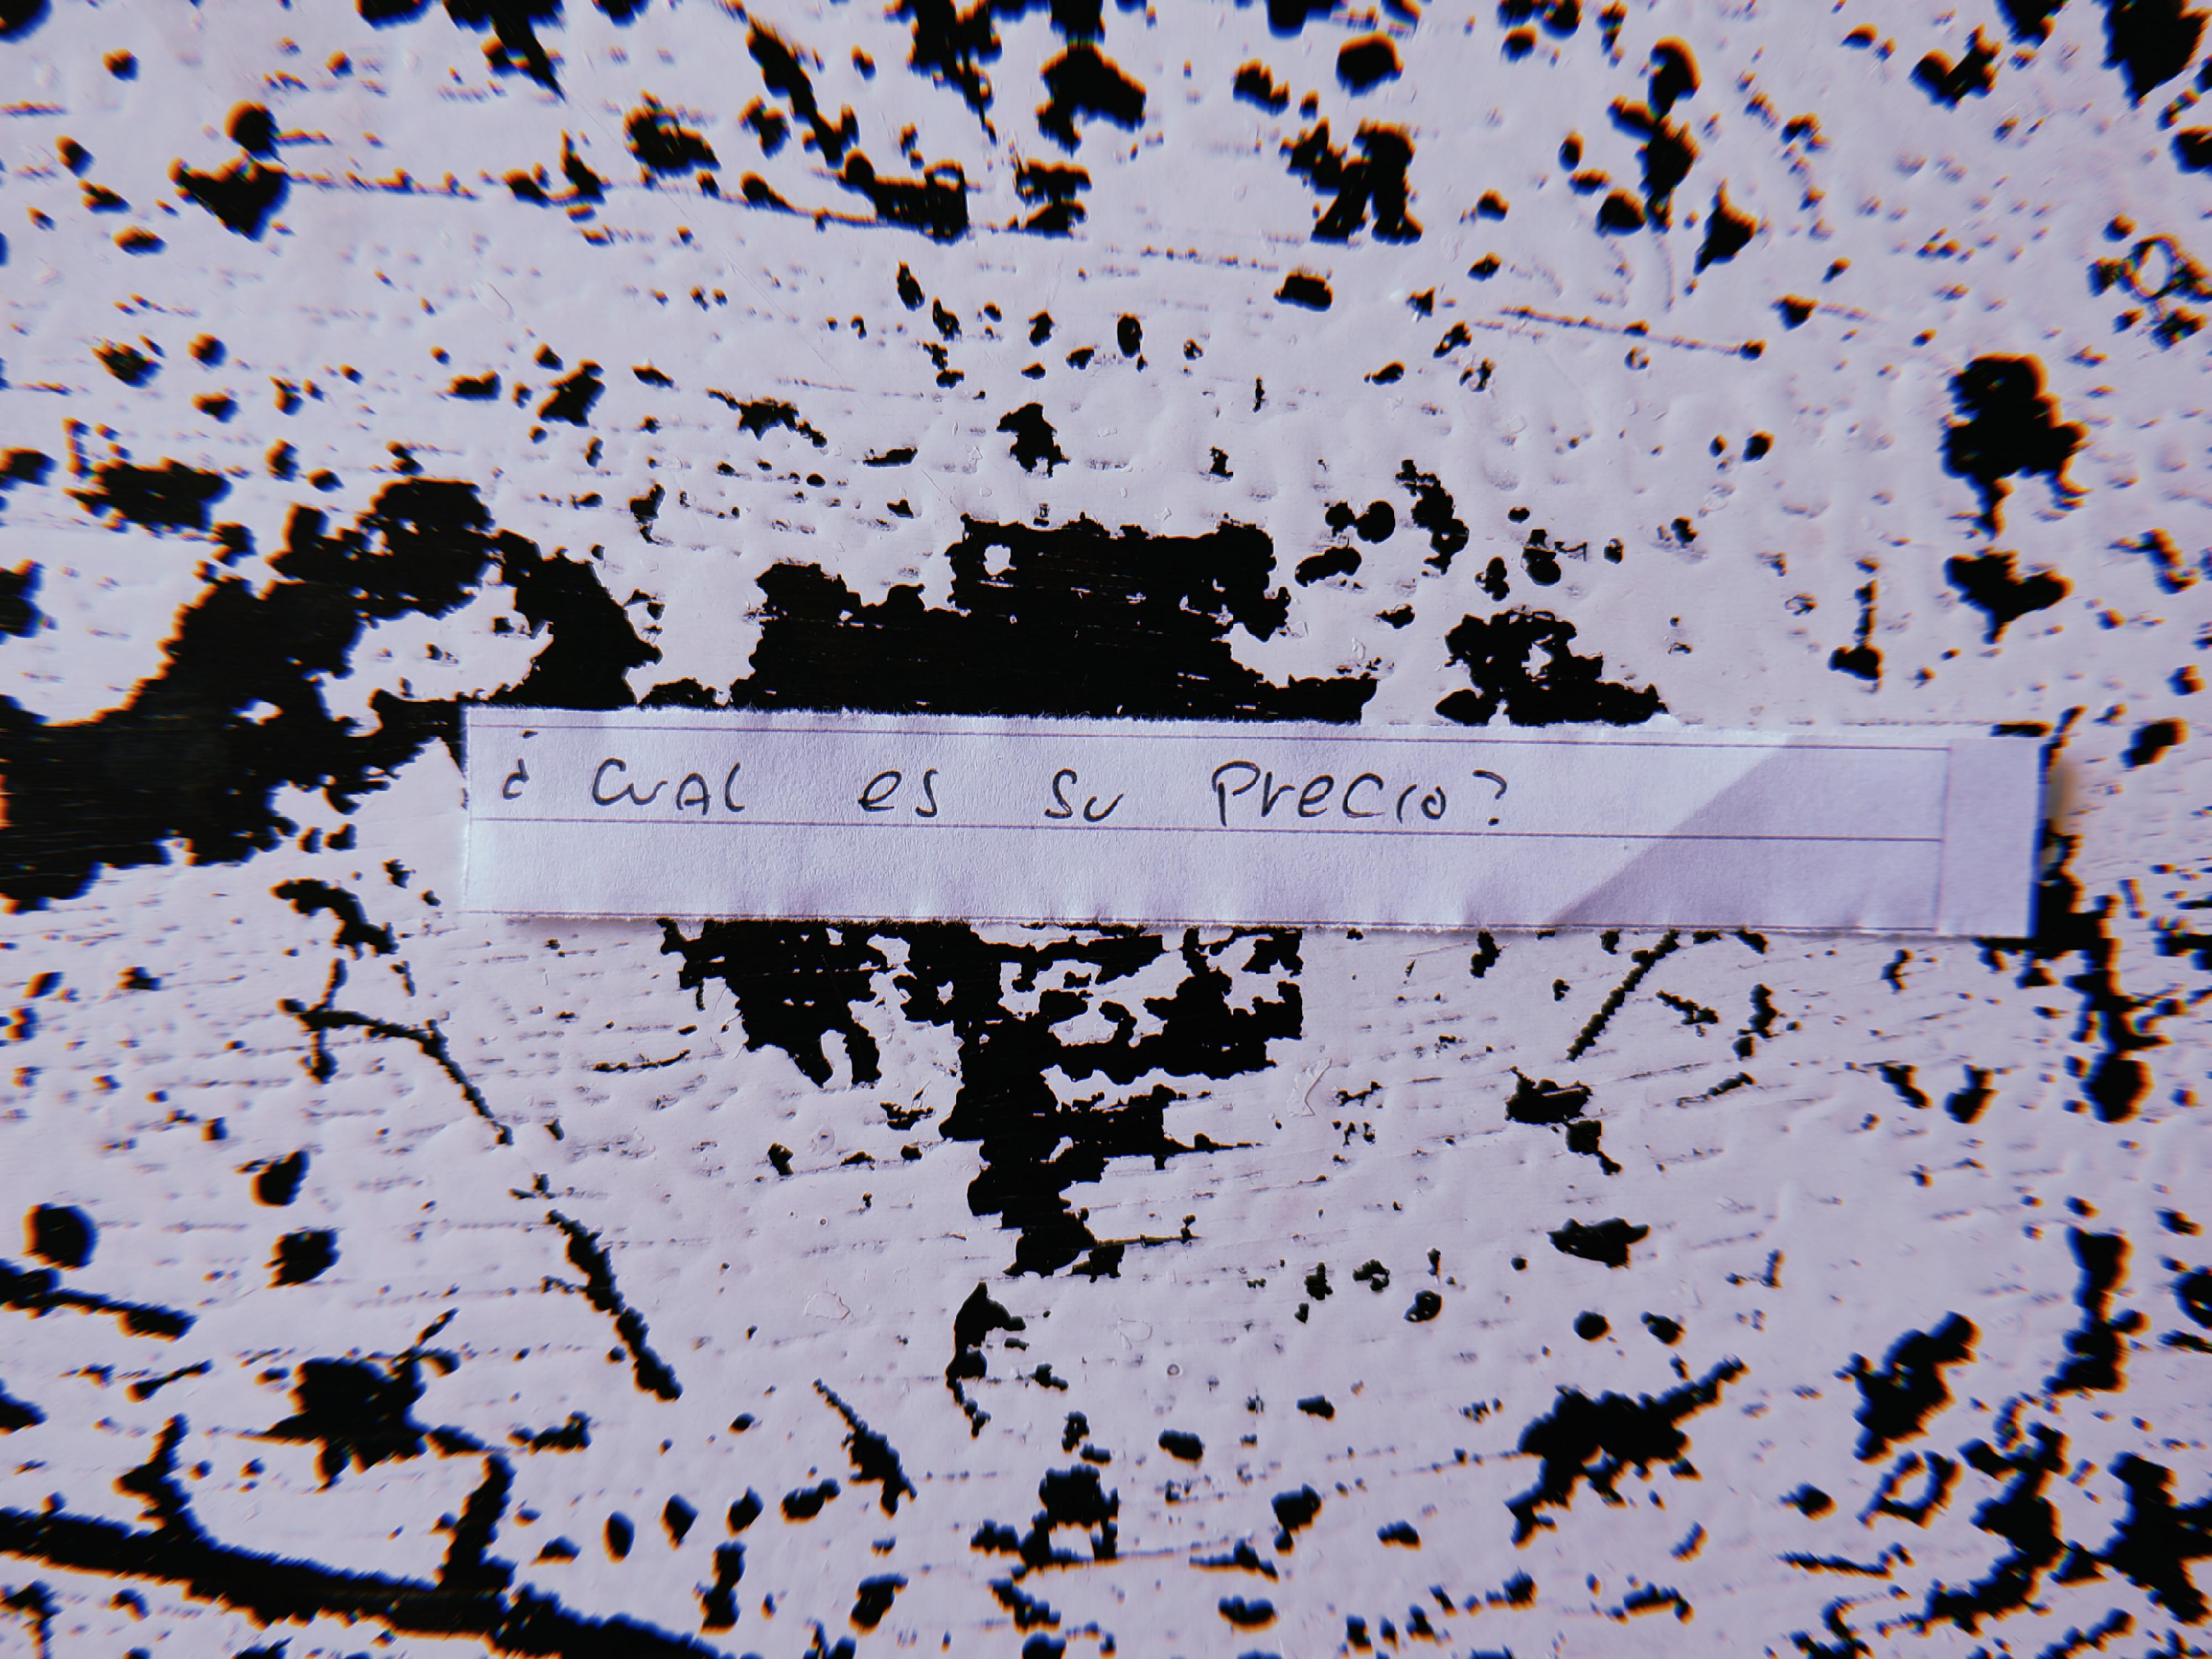 ¿ Cual es su precio?